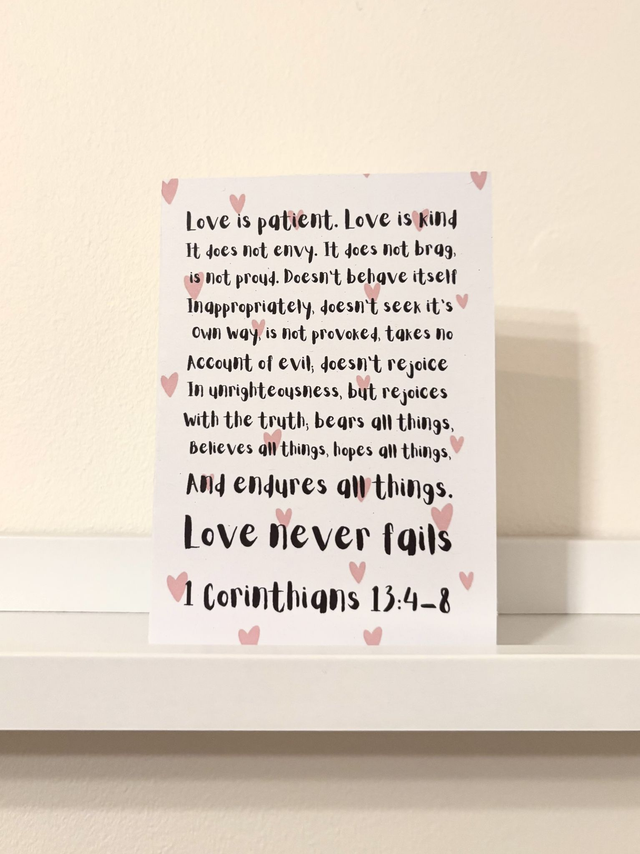 Love is patient. Love is kind
It does not envy. It does not brag,
is not proud. Doesn't behave itself
Inappropriately, doesn't seek it's
Own way, is not provoked, takes no
Account of evil; doesn't rejoice
In unrighteousness, but rejoices
With the truth; bears all things,
Believes all things, hopes all things,
And endures all things.
Love never fails
1 Corinthians 13:4-8